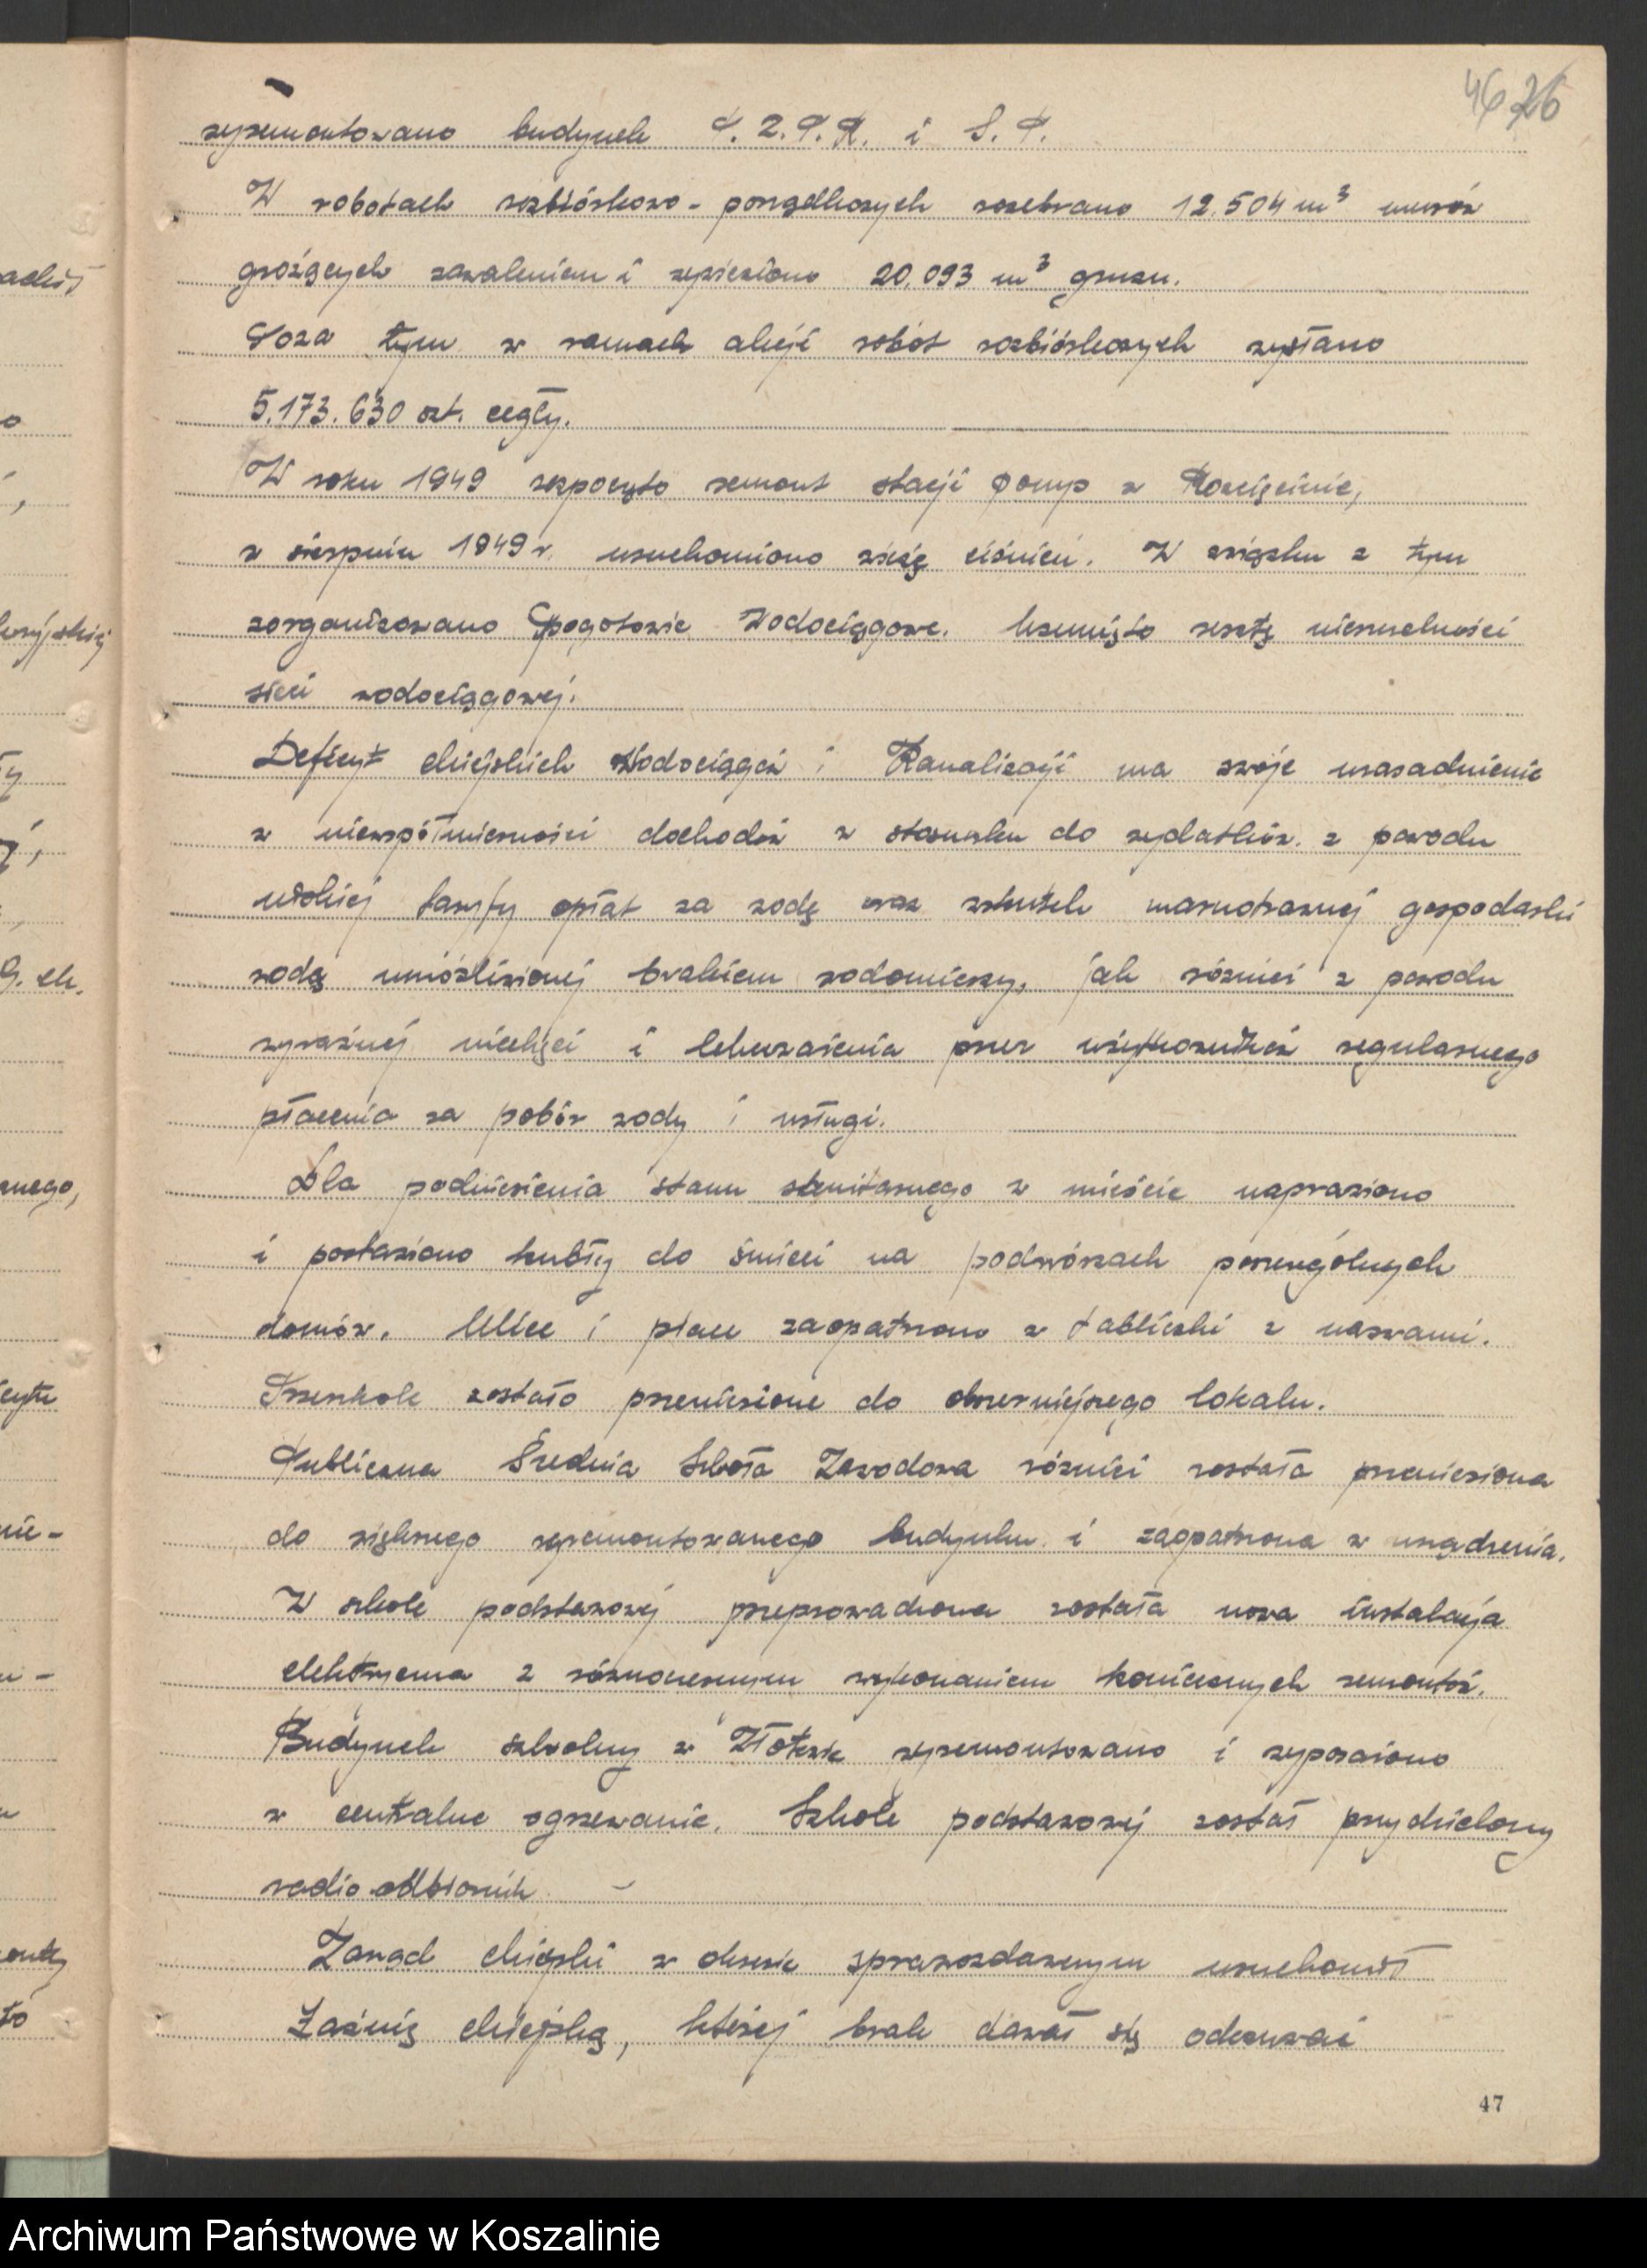 46 26
wyremontowano budynek P.Z.P.R. i S.P.
W robotach rozbiórkowo-porządkowych rozebrano 12.504 m³ murów
grożących zawaleniem i wywieziono 20.093 m³ gruzu.
Poza tym w ramach akcji robót rozbiórkowych wysłano
5.173.630 szt. cegły.
W roku 1949 rozpoczęto remont stacji pomp w Rościęcinie,
w sierpniu 1949 r. uruchomiono wieżę ciśnień. W związku z tym
zorganizowano Pogotowie Wodociągowe. Usunięto resztę nieszczelności
sieci wodociągowej.
Deficyt Miejskich Wodociągów i Kanalizacji ma swoje uzasadnienie
w niewspółmierności dochodów w stosunku do wydatków z powodu
niskiej taryfy opłat za wodę oraz wskutek marnotrawnej gospodarki
wodą umożliwionej brakiem wodomierzy, jak również z powodu
wyraźnej niechęci i lekceważenia przez użytkowników regularnego
płacenia za pobór wody i usługi.
Dla podniesienia stanu sanitarnego w mieście naprawiono
i postawiono kubły do śmieci na podwórzach poszczególnych
domów. Ulice i place zaopatrzono w tabliczki z nazwami.
Przedszkole zostało przeniesione do obszerniejszego lokalu.
Publiczna Średnia Szkoła Zawodowa również została przeniesiona
do większego wyremontowanego budynku i zaopatrzona w urządzenia.
W szkole podstawowej przeprowadzona została nowa instalacja
elektryczna z równoczesnym wykonaniem koniecznych remontów.
Budynek szkolny w wyremontowano i wyposażono
w centralne ogrzewanie. Szkole podstawowej został przydzielony
radio-odbiornik.
Zarząd Miejski w okresie sprawozdawczym uruchomił
Łaźnię Miejską, której brak dawał się odczuwać
47
Archiwum Państwowe w Koszalinie